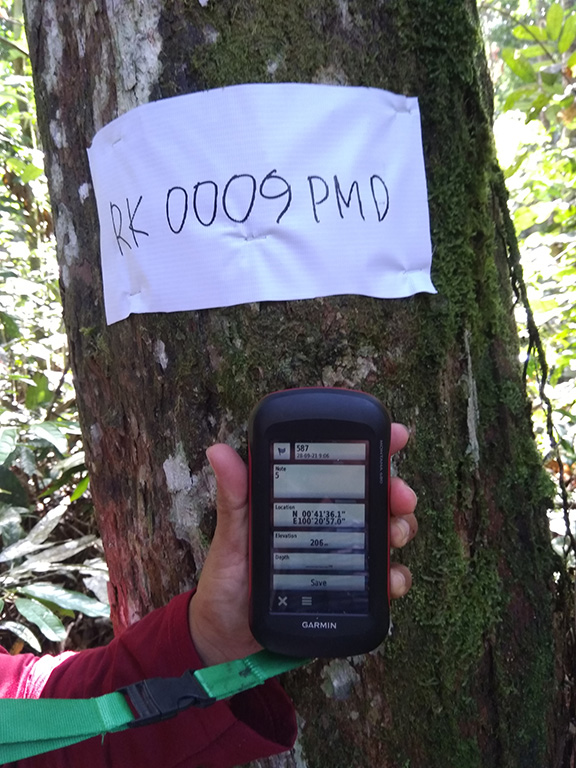 RK 0009 PMD
587
28-09-21 9:06
Note
5
Location
N 00°41'36.1"
E100°20'57.0"
Elevation
206m
Depth
Save
GARMIN